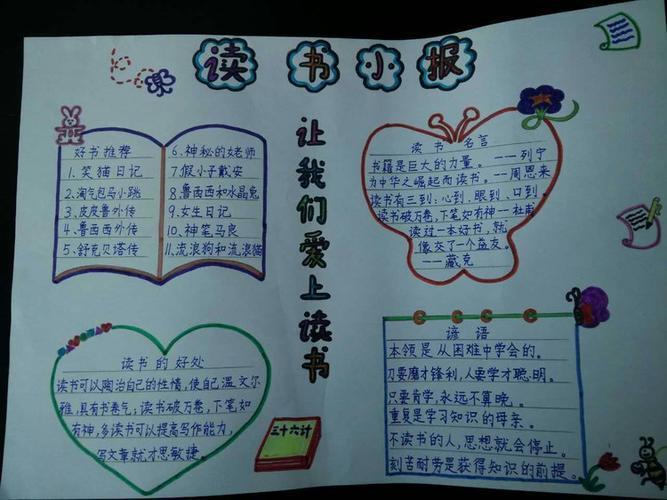 读书小报
让我们爱上读书
好书推荐
1.笑猫日记
2.淘气包马小跳
3.皮皮鲁外传
4.鲁西西外传
5.舒克贝塔传
6.神秘的女老师
7.假小子戴安
8.鲁西西和水晶兔
9.女生日记
10.神笔马良
11.流浪狗和流浪猫
读书 名言
书籍是巨大的力量。——列宁
为中华之崛起而读书。--周恩来
读书有三到:心到、眼到、口到
读书破万卷,下笔如有神—杜甫
读过一本好书,就
像交了一个益友。
——臧克
读书的好处
读书可以陶冶自己的性情,使自己温文尔
雅,具有书卷气;读书破万卷,下笔如
有神,多读书可以提高写作能力,
写文章就才思敏捷。
三十六计
谚语
本领是从困难中学会的。
刀要磨才锋利,人要学才聪明。
只要肯学,永远不算晚。
重复是学习知识的母亲。
不读书的人,思想就会停止。
刻苦耐劳是获得知识的前提。